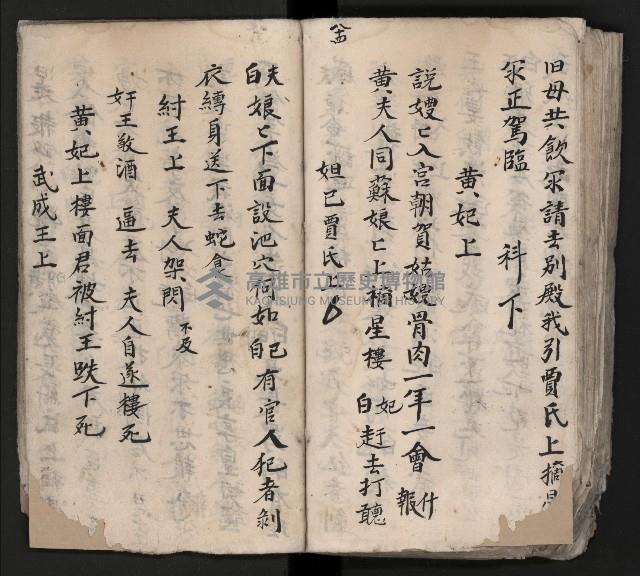 旧母共飲 宲請去别殿我引賈氏上摘星
宲正駕臨 科下
黄妃上
說嫂匕入宫朝賀姑嫂骨肉一年一會 什報
黄夫人同蘇娘匕上摘星樓 妃白 赶去打聽
妲已賈氏上
夫白 娘匕下面設池穴何如 已白 有官人犯者剝
衣縛身送下去蛇食
紂王上 夫人架閃不及
奸王敬酒 逼去 夫人自遂樓死
黄妃上樓面君被紂王跌下死
武成王上
高雄市立歷史博物館
KAOHSIUNG MUSEUM OF HISTORY